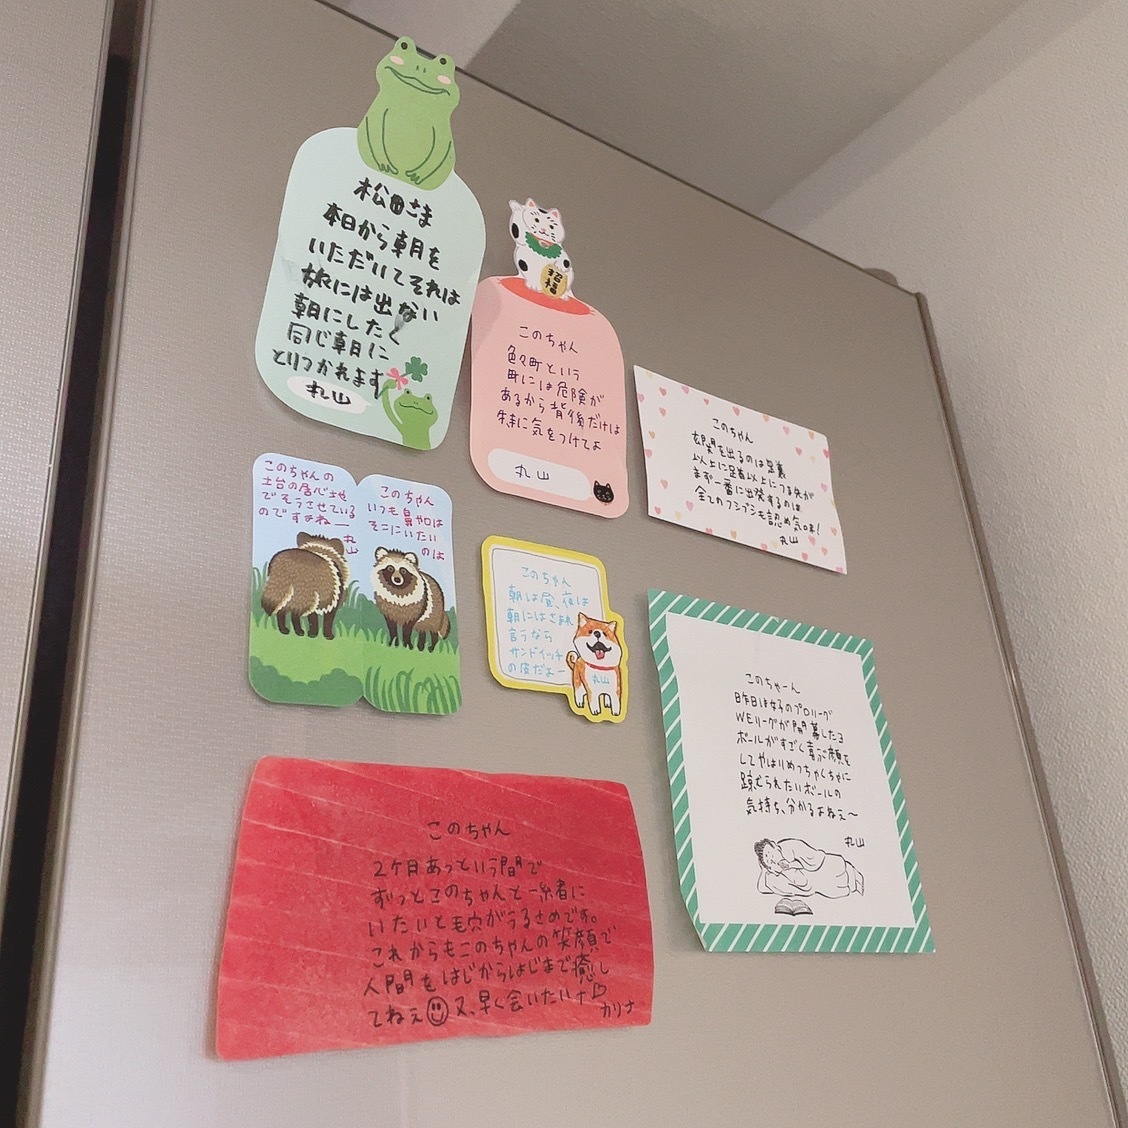 松田さま
本日から朝を
いただいてそれは
旅には出ない
朝にしたく
同じ朝日に
とりつかれます
丸山
招福
このちゃん
色々町という
町には危険が
あるから背後だけは
特に気をつけてよ
丸山
このちゃん
玄関を出るのは足裏
以上に足首以上につま先が
まず一番に出発するのは
全てのフシブシも認め気味!
丸山
このちゃんの
土台の居心地せ
でそうさせている
のですよねー
丸山
このちゃん
いつも鼻や口は
そこにいたい
のは
このちゃん
朝は昼、夜は
朝にはさまれ
言うなら
サンドイッチ
の皮だよー
丸山
このちゃーん
昨日は女子のプロリーグ
WEリーグが開幕したる
ボールがすごく喜ぶ顔を
してやはりめっちゃくちゃに
蹴むられたいボールの
気持ち、分かるよねえ〜
丸山
このちゃん
2ケ月あっという間で
ずっとこのちゃんと一緒者に
いたいと毛穴がうるさめです。
これからもこのちゃんの笑顔で
人間をはじからはじまで癒し
てねえ 又、早く会いたいナ♡
カリナ